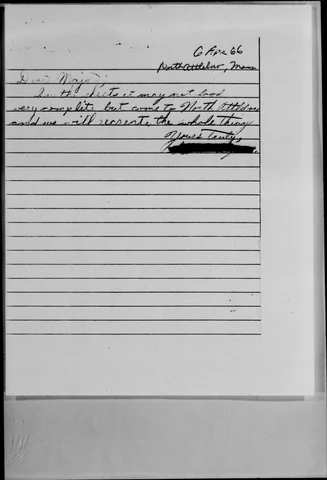 6 Apr 66
North Attleboro, Mass
Dear Major,
In the photos it may not look
very complete but come to North Attleboro
and we will recreate the whole thing
Yours Truly,